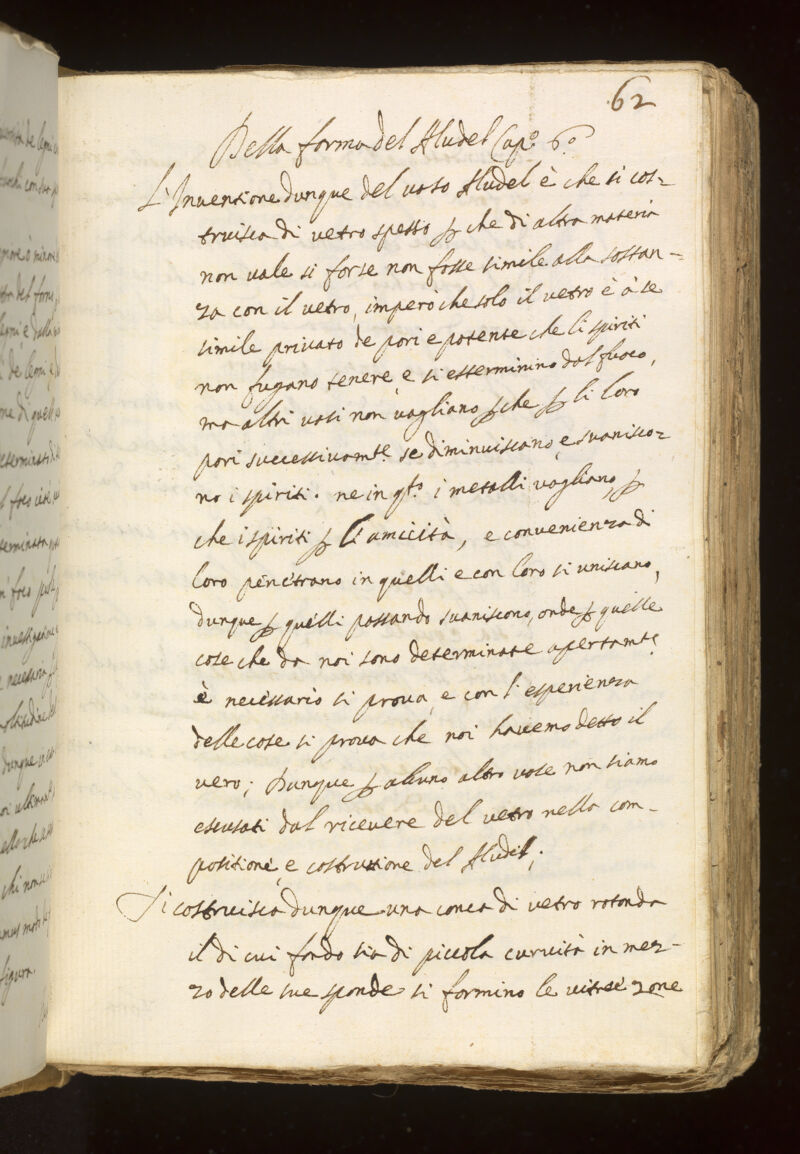 62
Della forma del Aludel Cap.º 6.º
L'Inventione dunque del vaso Aludel è che si cos=
truisca di vetro spesso p che di altra materia
non vale si forse non fosse simile alla sostan=
za con il vetro, imperò che solo il vetro è à se
simile privato de pori e potente che li spiriti
non fugano tenere, e si esterminino dal fuoco,
ma altri vasi non vagliano pche p li loro
pori successivamte. se diminuiscano, e svanisco=
no i spiriti. ne in qsto. i metalli vagliano, p
che i spiriti p l'amicità, e convenienza di
loro penetrano in quelli e con loro si uniscano,
dunque p quelli passando svaniscono, onde p quelle
cose che da noi sono determinate apertamte.
è necessario si prova, e con l'esperienza
delle cose si prova che noi havemo detto il
vero; Dunque p alcuno altro vase non siamo
escusati dal ricevere del vetro nella com=
positione, e costruttione del Aludel;
Si costruisca dunque una conca di vetro rotonda
il di cui fondo sia di piccola curvità in mez=
zo delle sue sponde si formino le vitree zone